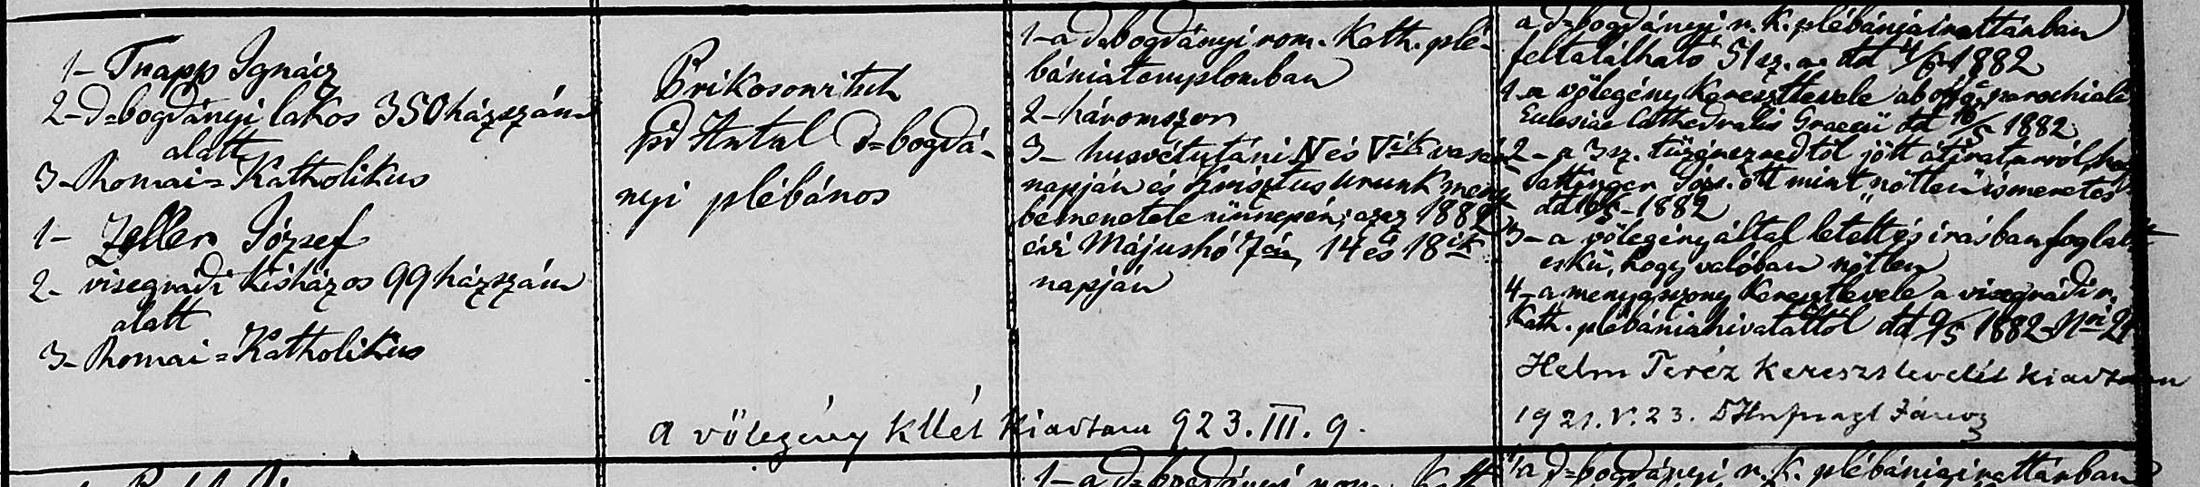 1- Trapp Ignácz
2- D=bogdányi lakos 350 házszám
alatt
3- Romai=Katholikus
1- Zeller József
2- visegrádi kisházos 99 házszám
alatt
3- Romai=Katholikus
Antal D=bogdá-
nyi plébános
a vőlegény kllét kiadtam 923.III.9.
1- a D.bogdányi rom. Kath. plé-
bánia templomban
2- háromszor
3- husvét utáni és
napján és Krisztus Urunk meny
bemenetele ünnepén, azaz 1882
évi Májushó 7én, 14 és 18ik
napján
a D=bogdányi r. k. plébánia irattárban
feltalálható 51 sz. a. dd 1882
1- a vőlegény keresztlevele parochiali
Eclesiae Cathedralis Graecii dd 1882
2- a 3 sz. tüzérezredtől jött
ott mint nőtlen ismeretes
dd 1882
3- a vőlegény által letett és irásban foglalt
eskü, hogy valóban nőtlen
4- a menyasszony keresztlevele a visegrádi r.
Kath. plébánia hivataltól dd 9/5 1882
Helm Teréz keresztlevelét kiadtam
1921.V.23. János
1- a D=bogdányi rom. Kath
a D=bogdányi r. k. plébánia irattárban